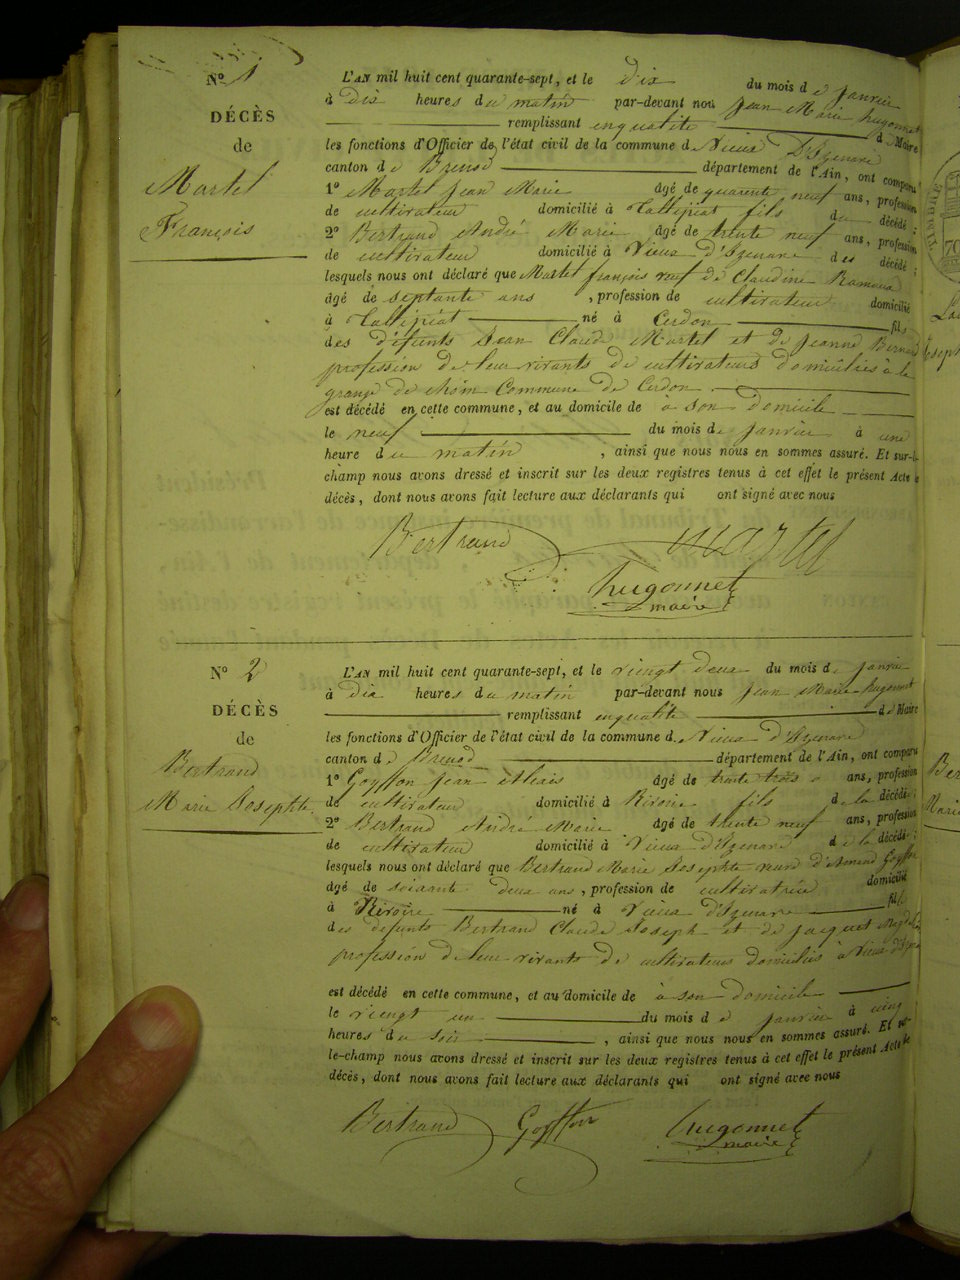 N° 1
DÉCÈS
de
Martel
François
L'AN mil huit cent quarante-sept, et le dix du mois de janvier
à dix heures du matin par-devant nous jean Marie hugonnet
remplissant enqualité de Maire
les fonctions d'Officier de l'état civil de la commune de Vieux D'Izenave
canton de Brenod département de l'Ain, ont comparu
1° Martel jean Marie âgé de quarente neuf ans, profession
de cultivateur domicilié à fils du décédé ;
2° Bertrand André Marie âgé de trente neuf ans, profession
de cultivateur domicilié à Vieux d'Izenave des décédé ;
lesquels nous ont déclaré que Martel françois veuf de Claudine
âgé de septante ans , profession de cultivateur domicilié
à né à Cerdon fils
des défunts Jean Claude Martel et de Jeanne Bernard
profession de leur vivants de cultivateurs domiciliés à la
grange de Commune de Cerdon
est décédé en cette commune, et au domicile de à son domicile
le neuf du mois de janvier à une
heure du matin , ainsi que nous nous en sommes assuré. Et sur-le-
champ nous avons dressé et inscrit sur les deux registres tenus à cet effet le présent Acte de
décès, dont nous avons fait lecture aux déclarants qui ont signé avec nous
Bertrand martel
hugonnet
maire
N° 2
DÉCÈS
de
Bertrand
Marie Josephte
L'AN mil huit cent quarante-sept, et le vingt deux du mois de janvier
à dix heures du matin par-devant nous jean Marie hugonnet
remplissant enqualité de Maire
les fonctions d'Officier de l'état civil de la commune de Vieux d'Izenave
canton de Brenod département de l'Ain, ont comparu
1° Goyffon jean âgé de trente trois ans, profession
de cultivateur domicilié à fils de la décédée ;
2° Bertrand André Marie âgé de trente neuf ans, profession
de cultivateur domicilié à Vieux d'Izenave de la décédée ;
lesquels nous ont déclaré que Bertrand Marie Josephte Goyffon
âgé de soixante deux ans , profession de cultivatrice domicilié
à né à Vieux d'Izenave fille
des défunts Bertrand Claude Joseph et de jacquet
profession de leur vivants de cultivateurs domiciliés à Vieux
est décédé en cette commune, et au domicile de à son domicile
le vingt un du mois de janvier à cinq
heures du soir , ainsi que nous nous en sommes assuré. Et sur-
le-champ nous avons dressé et inscrit sur les deux registres tenus à cet effet le présent Acte de
décès, dont nous avons fait lecture aux déclarants qui ont signé avec nous
Bertrand Goyffon hugonnet
maire